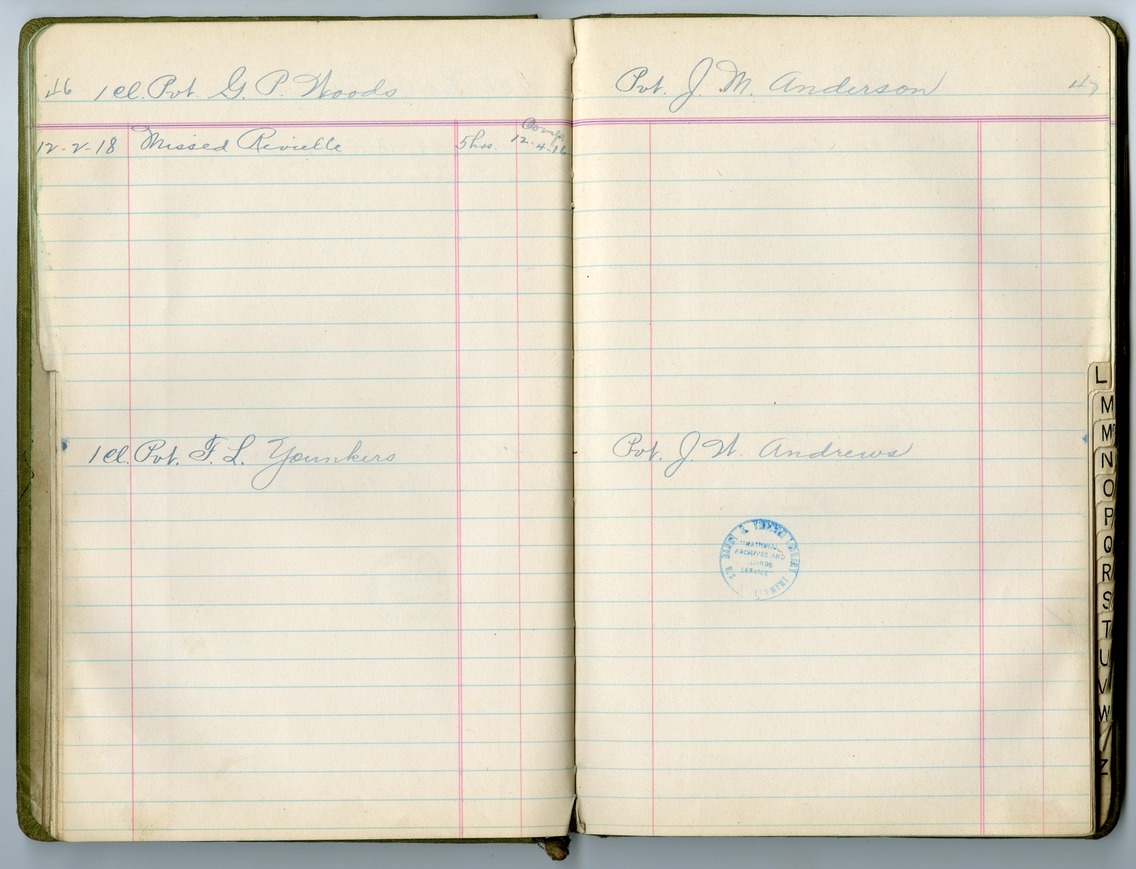 46 1 cl. Pvt. G. P. Woods
12-2-18 Missed Revielle 5 hrs. Comp. 12-4-18
1 cl. Pvt. F. L. Younkers
Pvt. J. M. Anderson 47
Pvt. J. W. Andrews
HARRY S. TRUMAN LIBRARY
NATIONAL
ARCHIVES AND
SERVICE
L
M
M
N
O
P
Q
R
S
T
U
V
W
Z